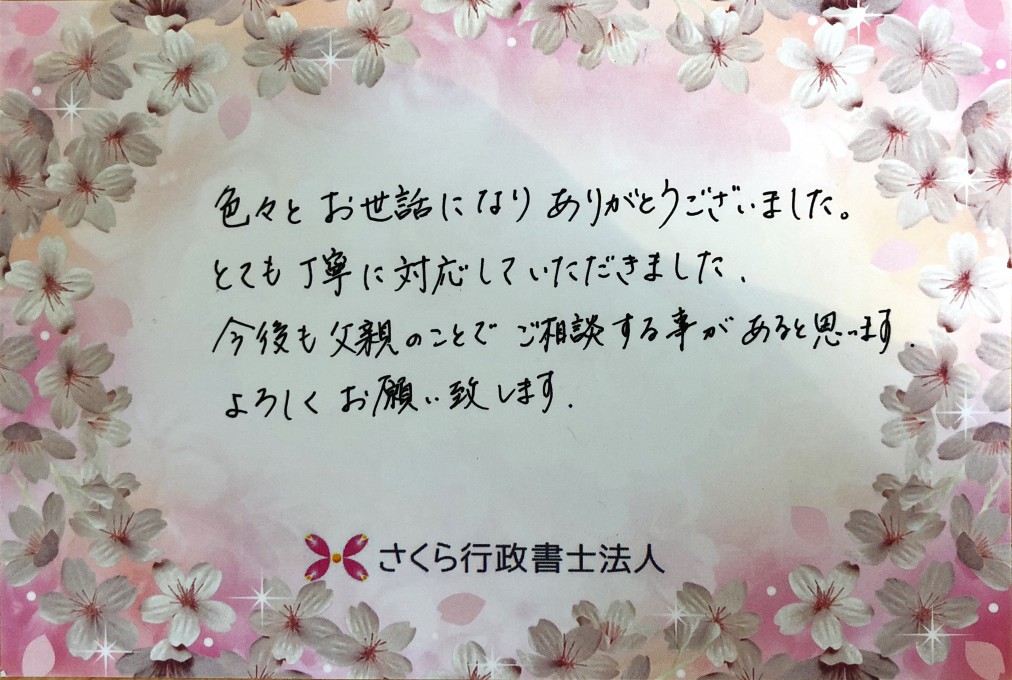 色々とお世話になりありがとうございました。
とても丁寧に対応していただきました.
今後も父親のことでご相談する事があると思います.
よろしくお願い致します.
さくら行政書士法人